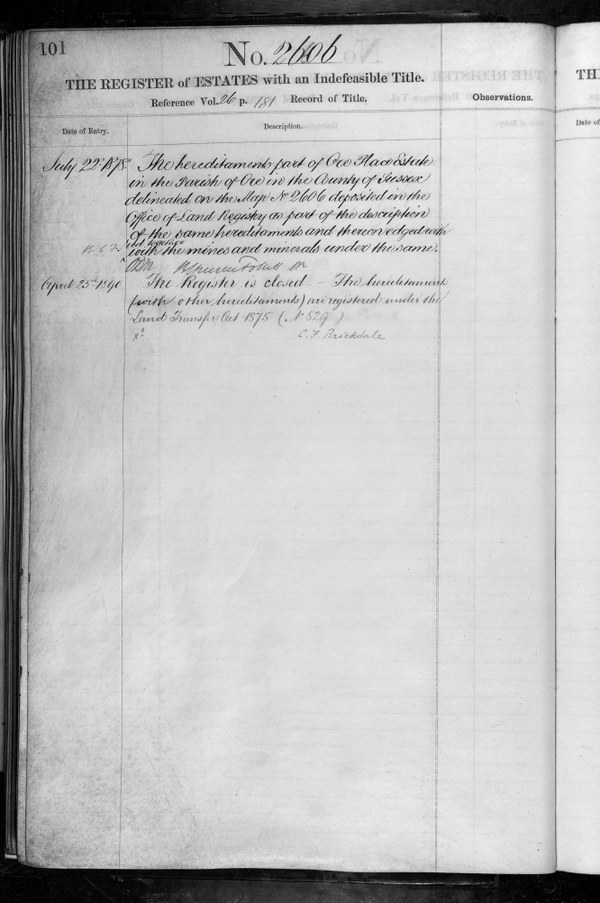 101
No. 2606
THE REGISTER of ESTATES with an Indefeasible Title.
Reference Vol. 26 p. 181 Record of Title.
Observations.
Date of Entry.
Description.
July 22nd 1875
The hereditaments part of Ore Place Estate
in the Parish of Ore in the County of Sussex
delineated on the Map No 2606 deposited in the
Office of Land Registry as part of the description
of the same hereditaments and thereon edged with
red together
with the mines and minerals under the same.
April 25th 1890
The Register is closed - The hereditaments
(with other hereditaments) are registered under the
Land Transfer Act 1875 (No 529)
C. F. Brickdale
TH
Date of